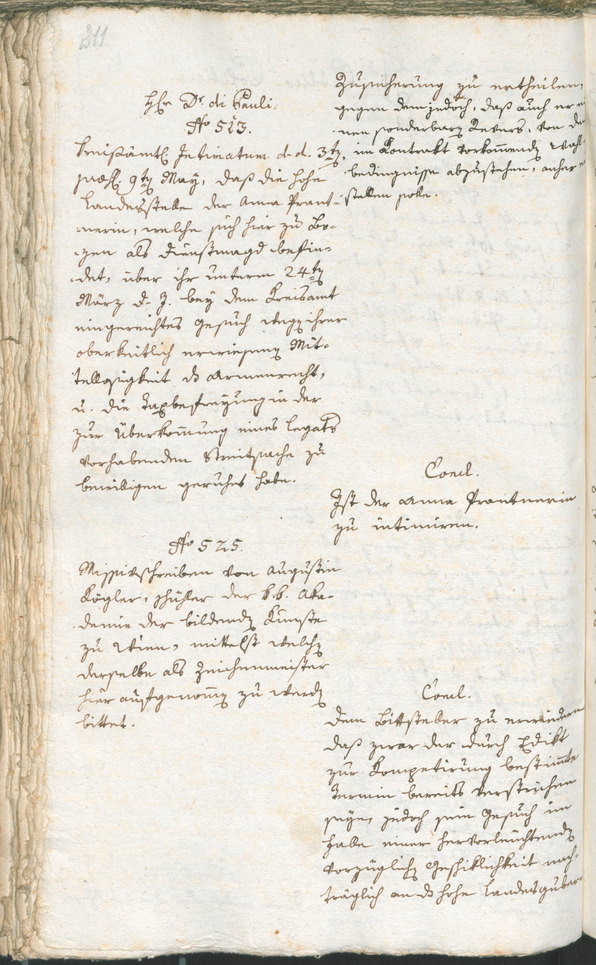 311
H.Hr Dr. di Pauli.
No 513.
Kreisämtl. Intimatum d. d. 3ten
praes. 9ten May, daß die hohe
Landesstelle der Anna Prant-
nerin, welche sich hier zu Bo-
zen als Dienstmagd befin-
det, über ihr unterm 24ten
März d. J. bey dem Kreisamt
eingereichtes Gesuch wegen ihrer
oberkeitlich erwiesenen Mit-
tellosigkeit das Armenrecht,
u. die Taxbefreyung in der
zur Überkommung eines Legats
vorhabenden Streitsache zu
bewilligen geruhet habe.
No 525.
Missivschreiben von Augustin
Kögler, Schüler der k. k. Aka-
demie der bildenden Künste
zu Wien, mittelst welchen
derselbe als Zeichenmeister
hier aufgenommen zu werden
bittet.
Zusicherung zu ertheilen,
gegen dem jedoch, daß auch er
nen sonderbaren Revers, von den
im Kontrakt vorkommenden
bedingnisse abzustehen,
stellen solle.
Concl.
Ist der Anna Prantnerin
zu intimiren.
Concl.
Dem Bittsteller zu erwiedern
daß zwar der durch Edikt
zur Kompetirung bestimmte
Termin bereits verstrichen
seye, jedoch sein Gesuch im
Falle einer hervorleuchtenden
vorzüglichen Geschiklichkeit nach-
träglich an das hohe Landesguber